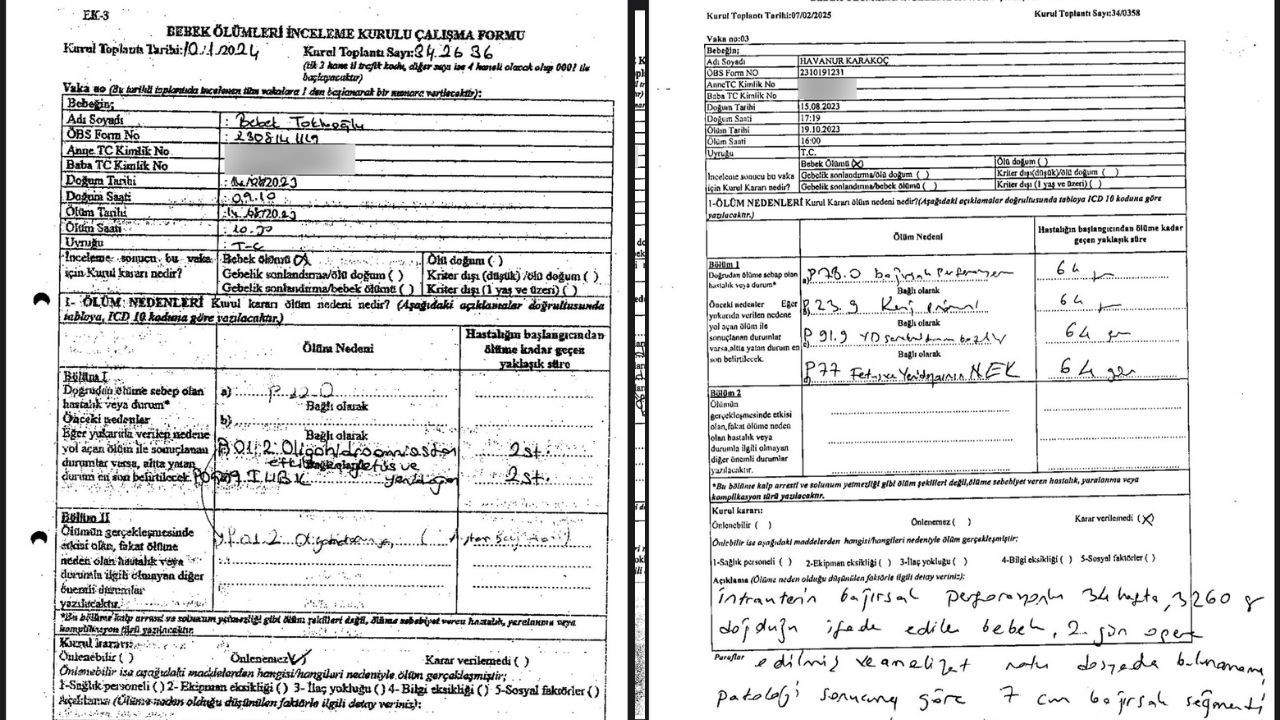 EK-3
BEBEK ÖLÜMLERİ İNCELEME KURULU ÇALIŞMA FORMU
Kurul Toplantı Tarihi: 10/1/2024 Kurul Toplantı Sayı: 342636
(İlk 2 hane il trafik kodu, diğer sayı ise 4 haneli olacak olup 0001 ile
başlayacaktır)
Vaka no (Bu tarihli toplantıda incelenen tüm vakalara 1 den başlanarak bir numara verilecektir):
Bebeğin;
Adı Soyadı : Bebek
ÖBS Form No
Anne TC Kimlik No
Baba TC Kimlik No
Doğum Tarihi
Doğum Saati : 09.10
Ölüm Tarihi
Ölüm Saati
Uyruğu : T.C
İnceleme sonucu bu vaka için Kurul kararı nedir?
Bebek ölümü (X) Ölü doğum ( )
Gebelik sonlandırma/ölü doğum ( ) Kriter dışı (düşük) /ölü doğum ( )
Gebelik sonlandırma/bebek ölümü ( ) Kriter dışı (1 yaş ve üzeri) ( )
1- ÖLÜM NEDENLERİ Kurul kararı ölüm nedeni nedir? (Aşağıdaki açıklamalar doğrultusunda
tabloya, ICD 10 koduna göre yazılacaktır.)
Ölüm Nedeni
Hastalığın başlangıcından
ölüme kadar geçen
yaklaşık süre
Bölüm I
Doğrudan ölüme sebep olan
hastalık veya durum*
a)
Bağlı olarak
Önceki nedenler
b)
Bağlı olarak
Eğer yukarıda verilen nedene
yol açan ölüm ile sonuçlanan
durumlar varsa, altta yatan
durum en son belirtilecek
P 01.2 2st.
2st.
Bölüm II
Ölümün gerçekleşmesinde
etkisi olan, fakat ölüme
neden olan hastalık veya
durumla ilgili olmayan diğer
önemli durumlar
yazılacaktır.
*Bu bölüme kalp arresti ve solunum yetmezliği gibi ölüm şekilleri değil, ölüme sebebiyet veren hastalık, yaralanma veya
komplikasyon türü yazılacaktır.
Kurul kararı:
Önlenebilir ( ) Önlenemez (✓) Karar verilemedi ( )
Önlenebilir ise aşağıdaki maddelerden hangisi/hangileri nedeniyle ölüm gerçekleşmiştir;
1-Sağlık personeli ( ) 2- Ekipman eksikliği ( ) 3- İlaç yokluğu ( ) 4- Bilgi eksikliği ( ) 5-Sosyal faktörler ( )
Açıklama (Ölüme neden olduğu düşünülen faktörle ilgili detay veriniz):
Kurul Toplantı Tarihi:07/02/2025 Kurul Toplantı Sayı:34/0358
Vaka no:03
Bebeğin;
Adı Soyadı HAVANUR KARAKOÇ
ÖBS Form NO 2310191231
AnneTC Kimlik No
Baba TC Kimlik No
Doğum Tarihi 15.08.2023
Doğum Saati 17:19
Ölüm Tarihi 19.10.2023
Ölüm Saati 16:00
Uyruğu T.C.
İnceleme sonucu bu vaka
için Kurul Kararı nedir?
Bebek Ölümü (X) Ölü doğum ( )
Gebelik sonlandırma/ölü doğum ( ) Kriter dışı(düşük)/ölü doğum ( )
Gebelik sonlandırma/bebek ölümü ( ) Kriter dışı (1 yaş ve üzeri) ( )
1-ÖLÜM NEDENLERİ Kurul Kararı ölüm nedeni nedir?(Aşağıdaki açıklamalar doğrultusunda tabloya ICD 10 koduna göre
yazılacaktır.)
Ölüm Nedeni
Hastalığın başlangıcından ölüme kadar
geçen yaklaşık süre
Bölüm 1
Doğrudan ölüme sebep olan
hastalık veya durum*
a) P78.0 bağırsak perforasyonu 64 gün
Bağlı olarak
Önceki nedenler Eğer
yukarıda verilen nedene
yol açan ölüm ile
sonuçlanan durumlar
varsa,altta yatan durum en
son belirtilecek.
P 23.9 64 gün
Bağlı olarak
P 91.9 YD 64 gün
Bağlı olarak
P77 NEK 64 gün
Bölüm 2
Ölümün
gerçekleşmesinde etkisi
olan,fakat ölüme neden
olan hastalık veya
durumla ilgili olmayan
diğer önemli durumlar
yazılacaktır.
*Bu bölüme kalp arresti ve solunum yetmezliği gibi ölüm şekilleri değil,ölüme sebebiyet veren hastalık, yaralanma veya
komplikasyon türü yazılacaktır.
Kurul kararı:
Önlenebilir ( ) Önlenemez ( ) Karar verilemedi (X)
Önlebilir ise aşağıdaki maddelerden hangisi/hangileri nedeniyle ölüm gerçekleşmiştir;
1-Sağlık personeli ( ) 2-Ekipman eksikliği ( ) 3-İlaç yokluğu ( ) 4-Bilgi eksikliği ( ) 5-Sosyal faktörler ( )
Açıklama (Ölüme neden olduğu düşünülen faktörle ilgili detay veriniz):
bağırsak perforasyonu 34 hafta, 3260 g
doğduğu ifade edilen bebek, 2. gün opere
Paraflar
edilmiş ve ameliyat notu dosyada bulunmamış
patoloji sonucuna göre 7 cm bağırsak segmenti